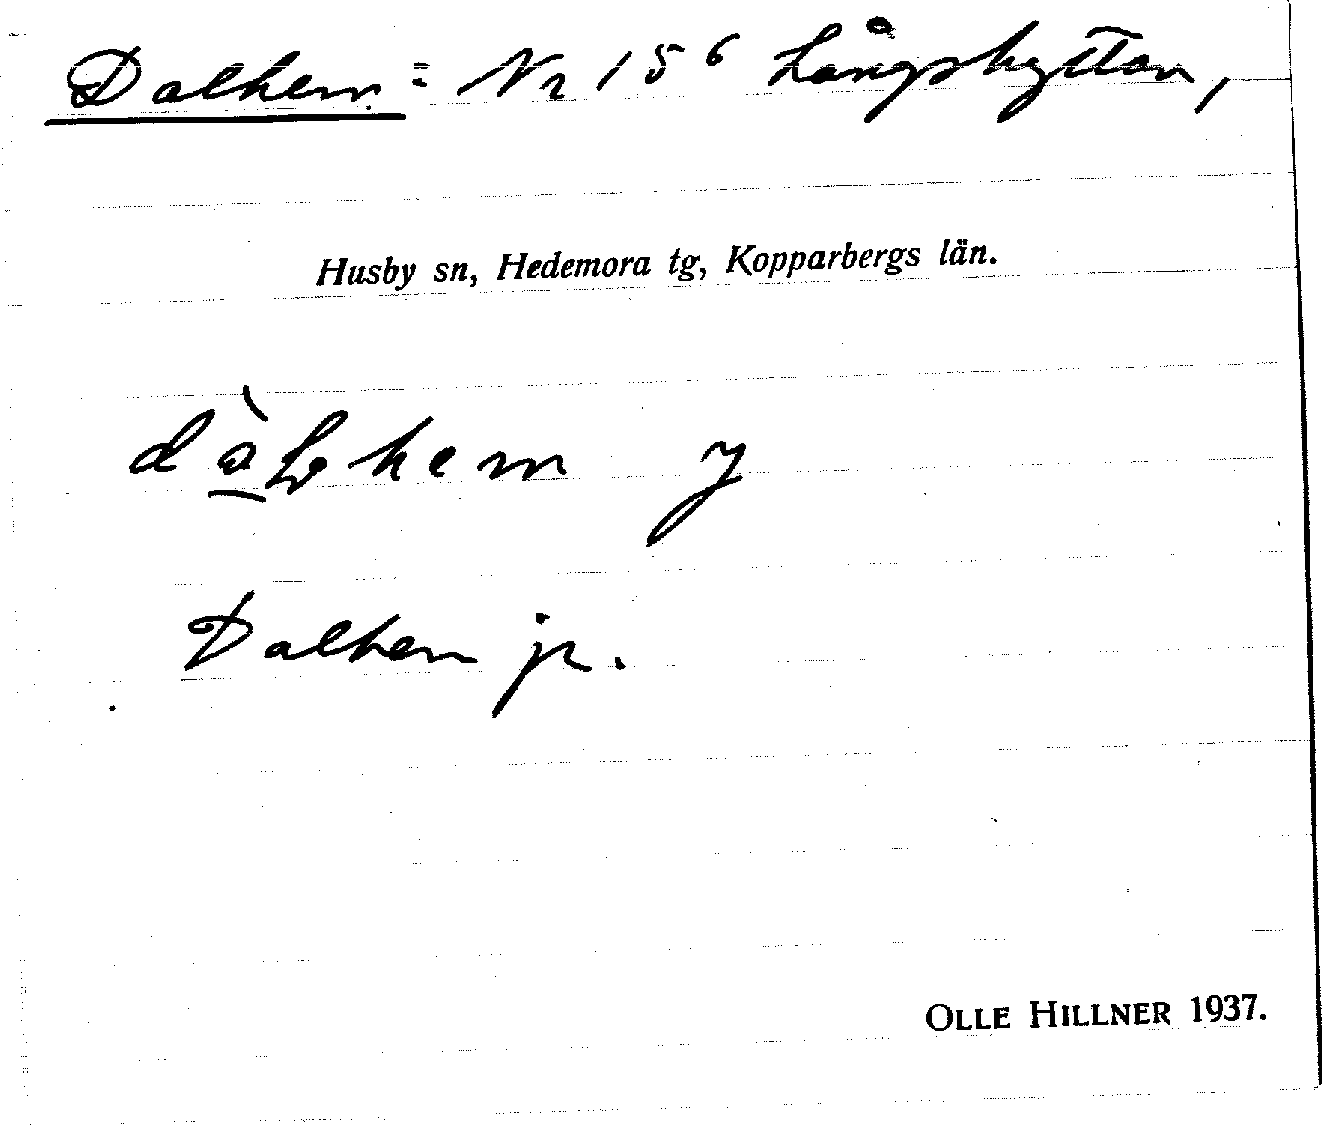 Dalhem = Nr 156 Långshyttan,
Husby sn, Hedemora tg, Kopparbergs län.
Dalhem jr.
OLLE HILLNER 1937.